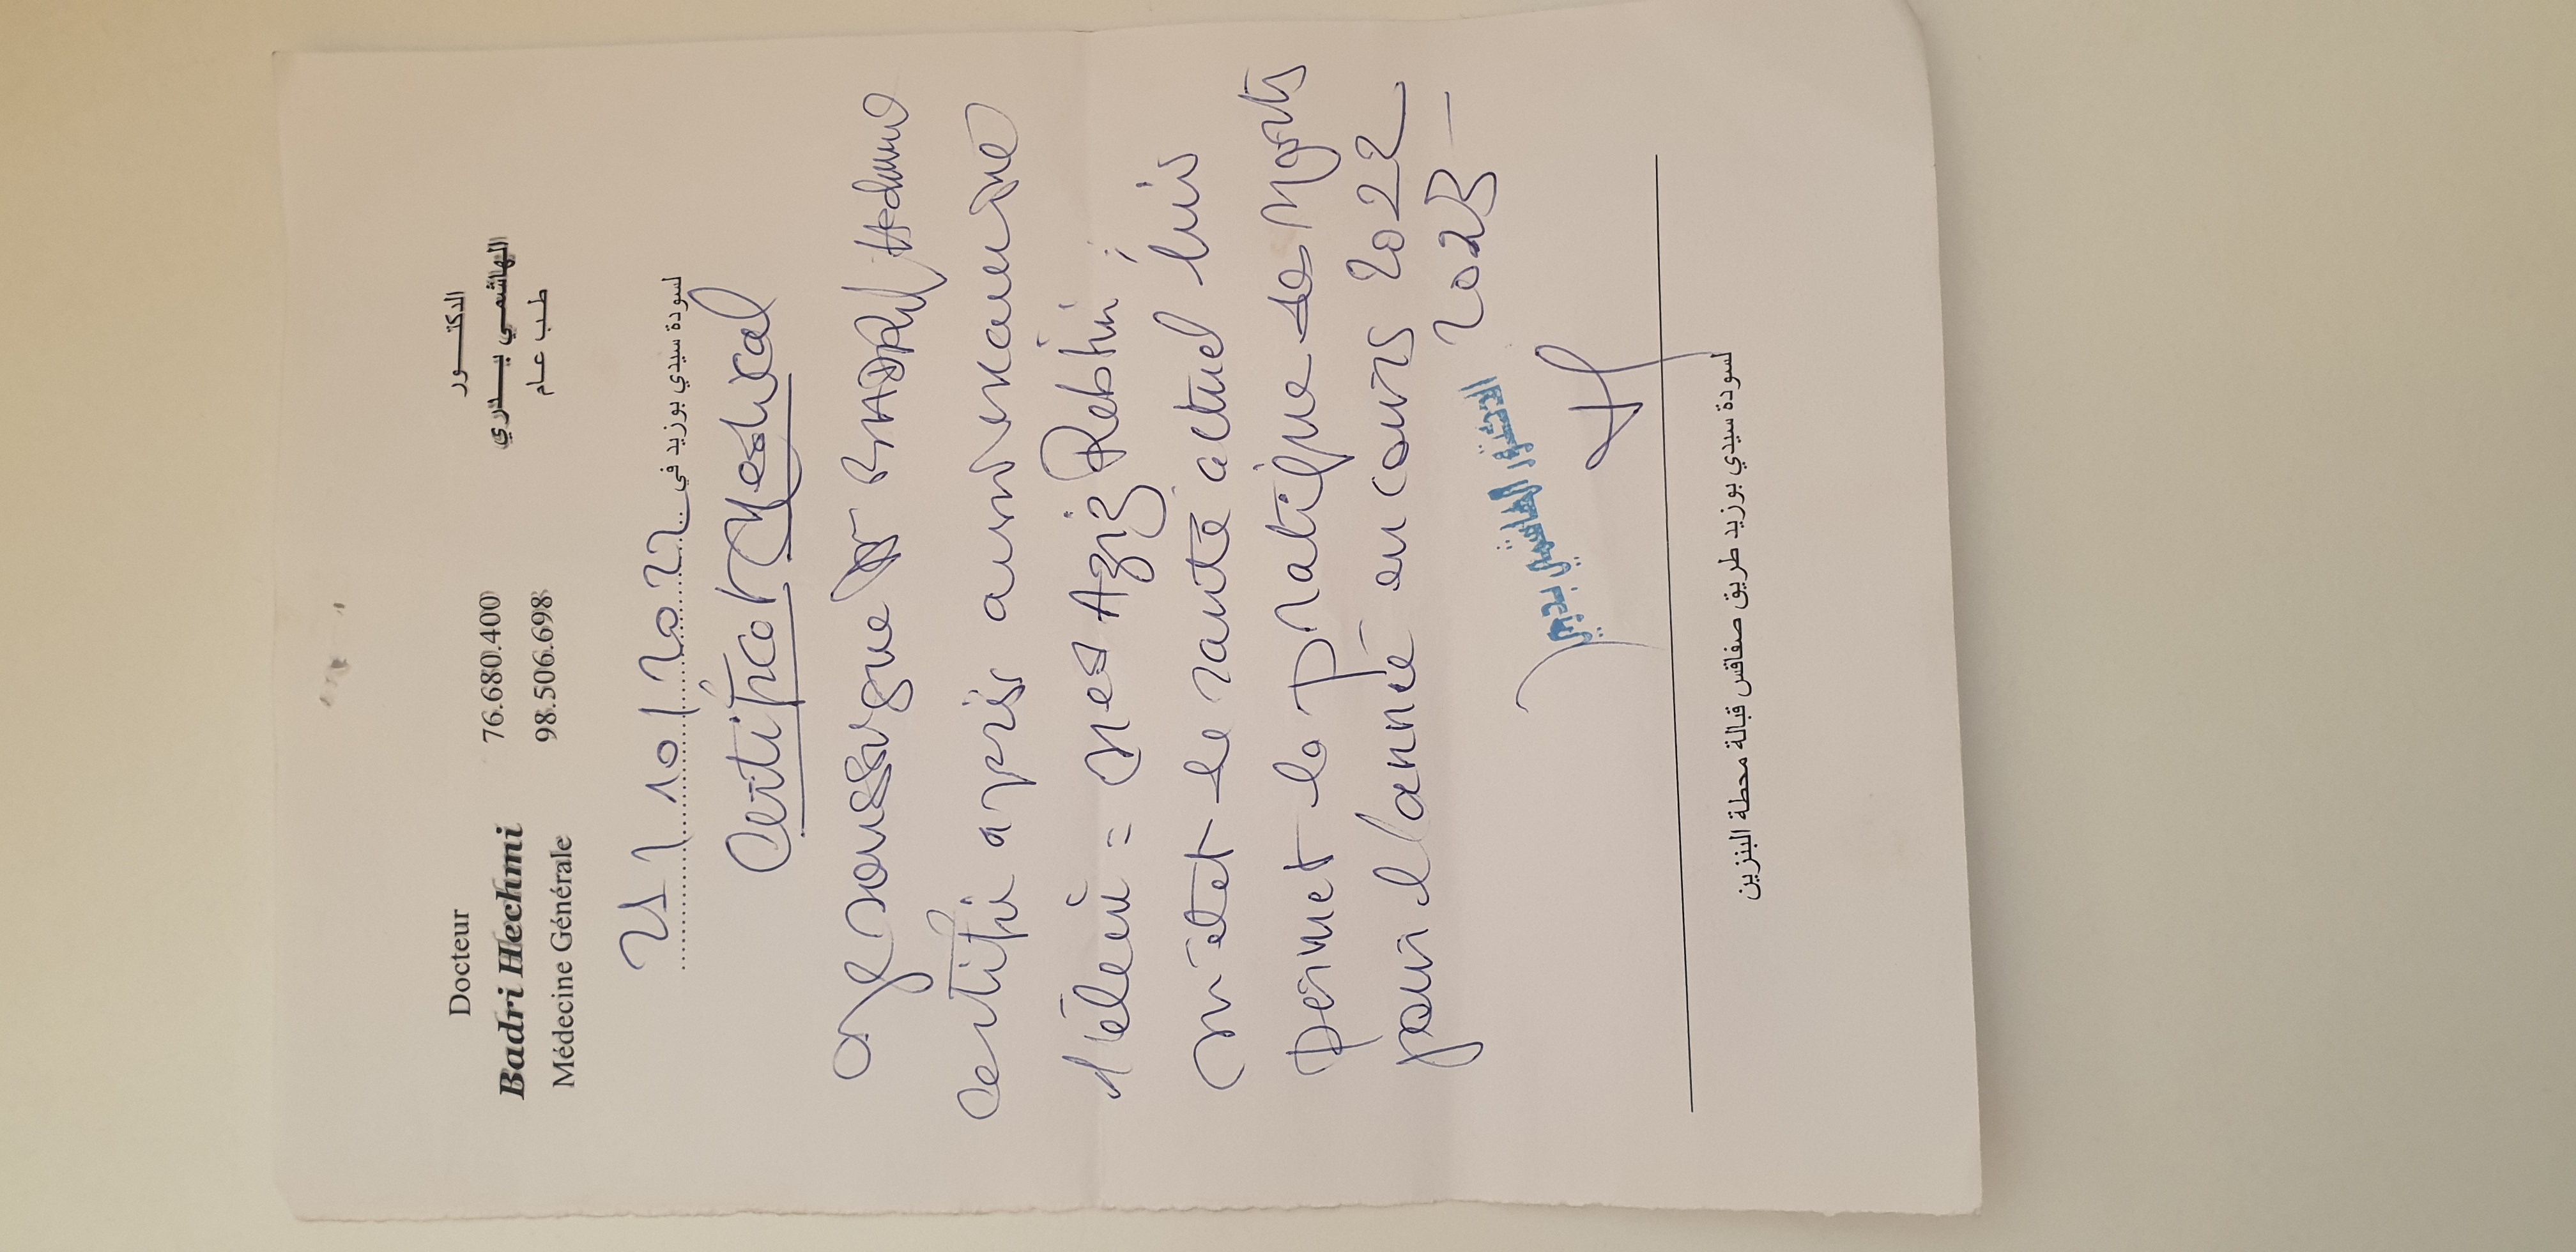 Docteur
Badri Hechmi
Médecine Générale
76.680.400
98.506.698
الدكتـــور
الهاشمـي بـــدري
طـب عـام
لسودة سيدي بوزيد في 21/10/2022
Certificat Medical
Je soussigné Dr BADRI Hechmi
certifie après avoir examiné
l'élève : Med Aziz Rebhi
état de santé actuel lui
permet la pratique de sports
pour l'année en cours 2022
2023
الدكتور الهاشمي بدري
لسودة سيدي بوزيد طريق صفاقس قبالة محطة البنزين